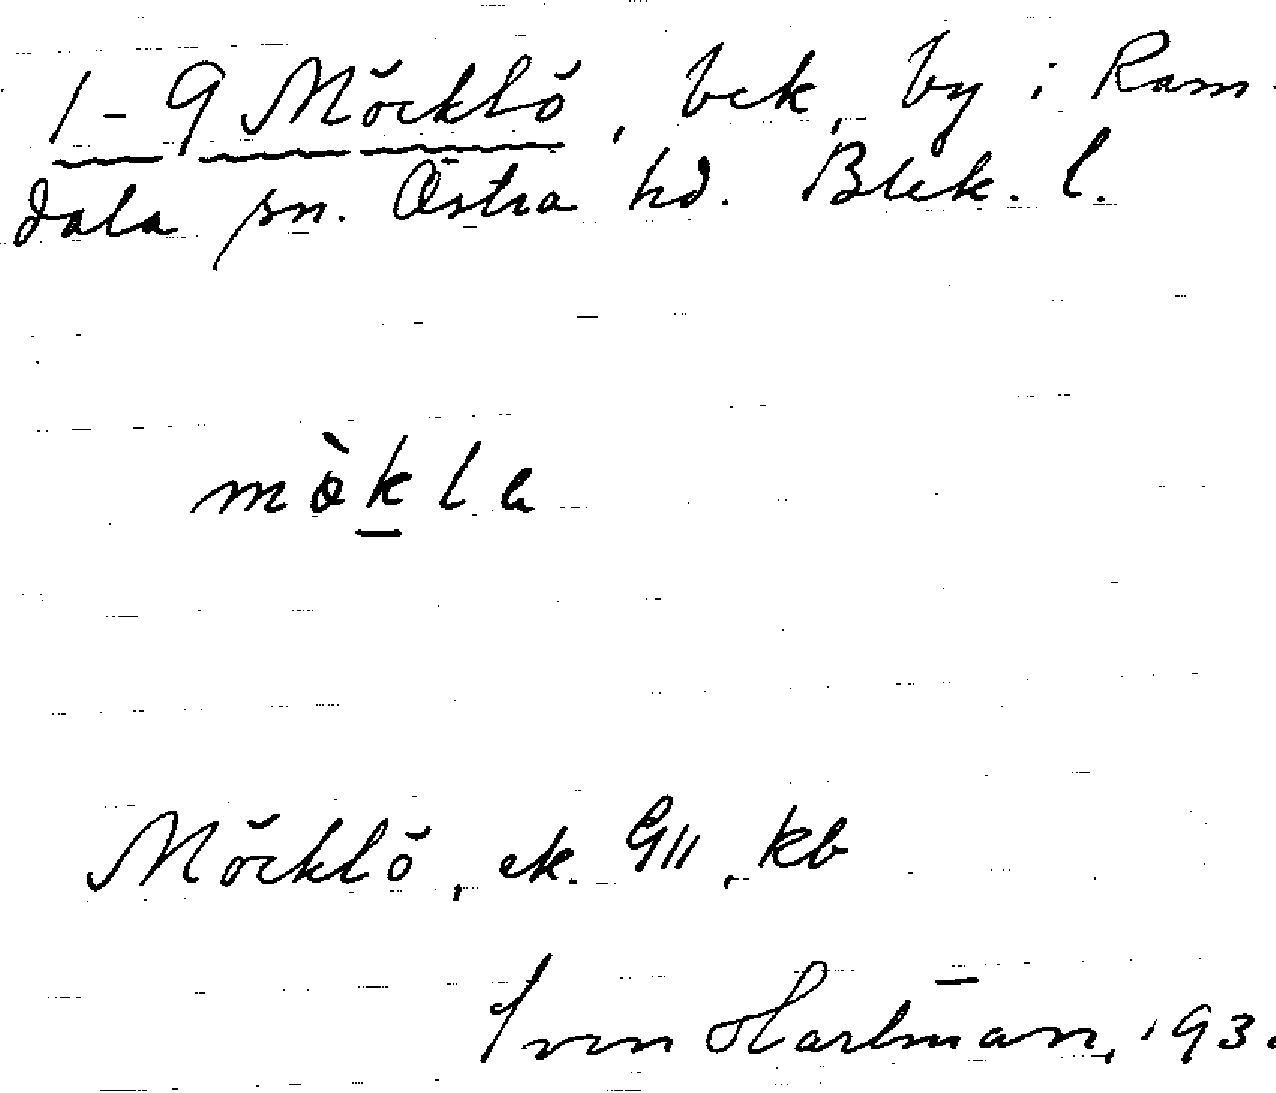 1-9 Möcklö, bek, by i Ram-
dala sn. Östra hd. Blek. l.
mö̀kla
Möcklö, ek. GII, kb
Sven Hartman, 193.